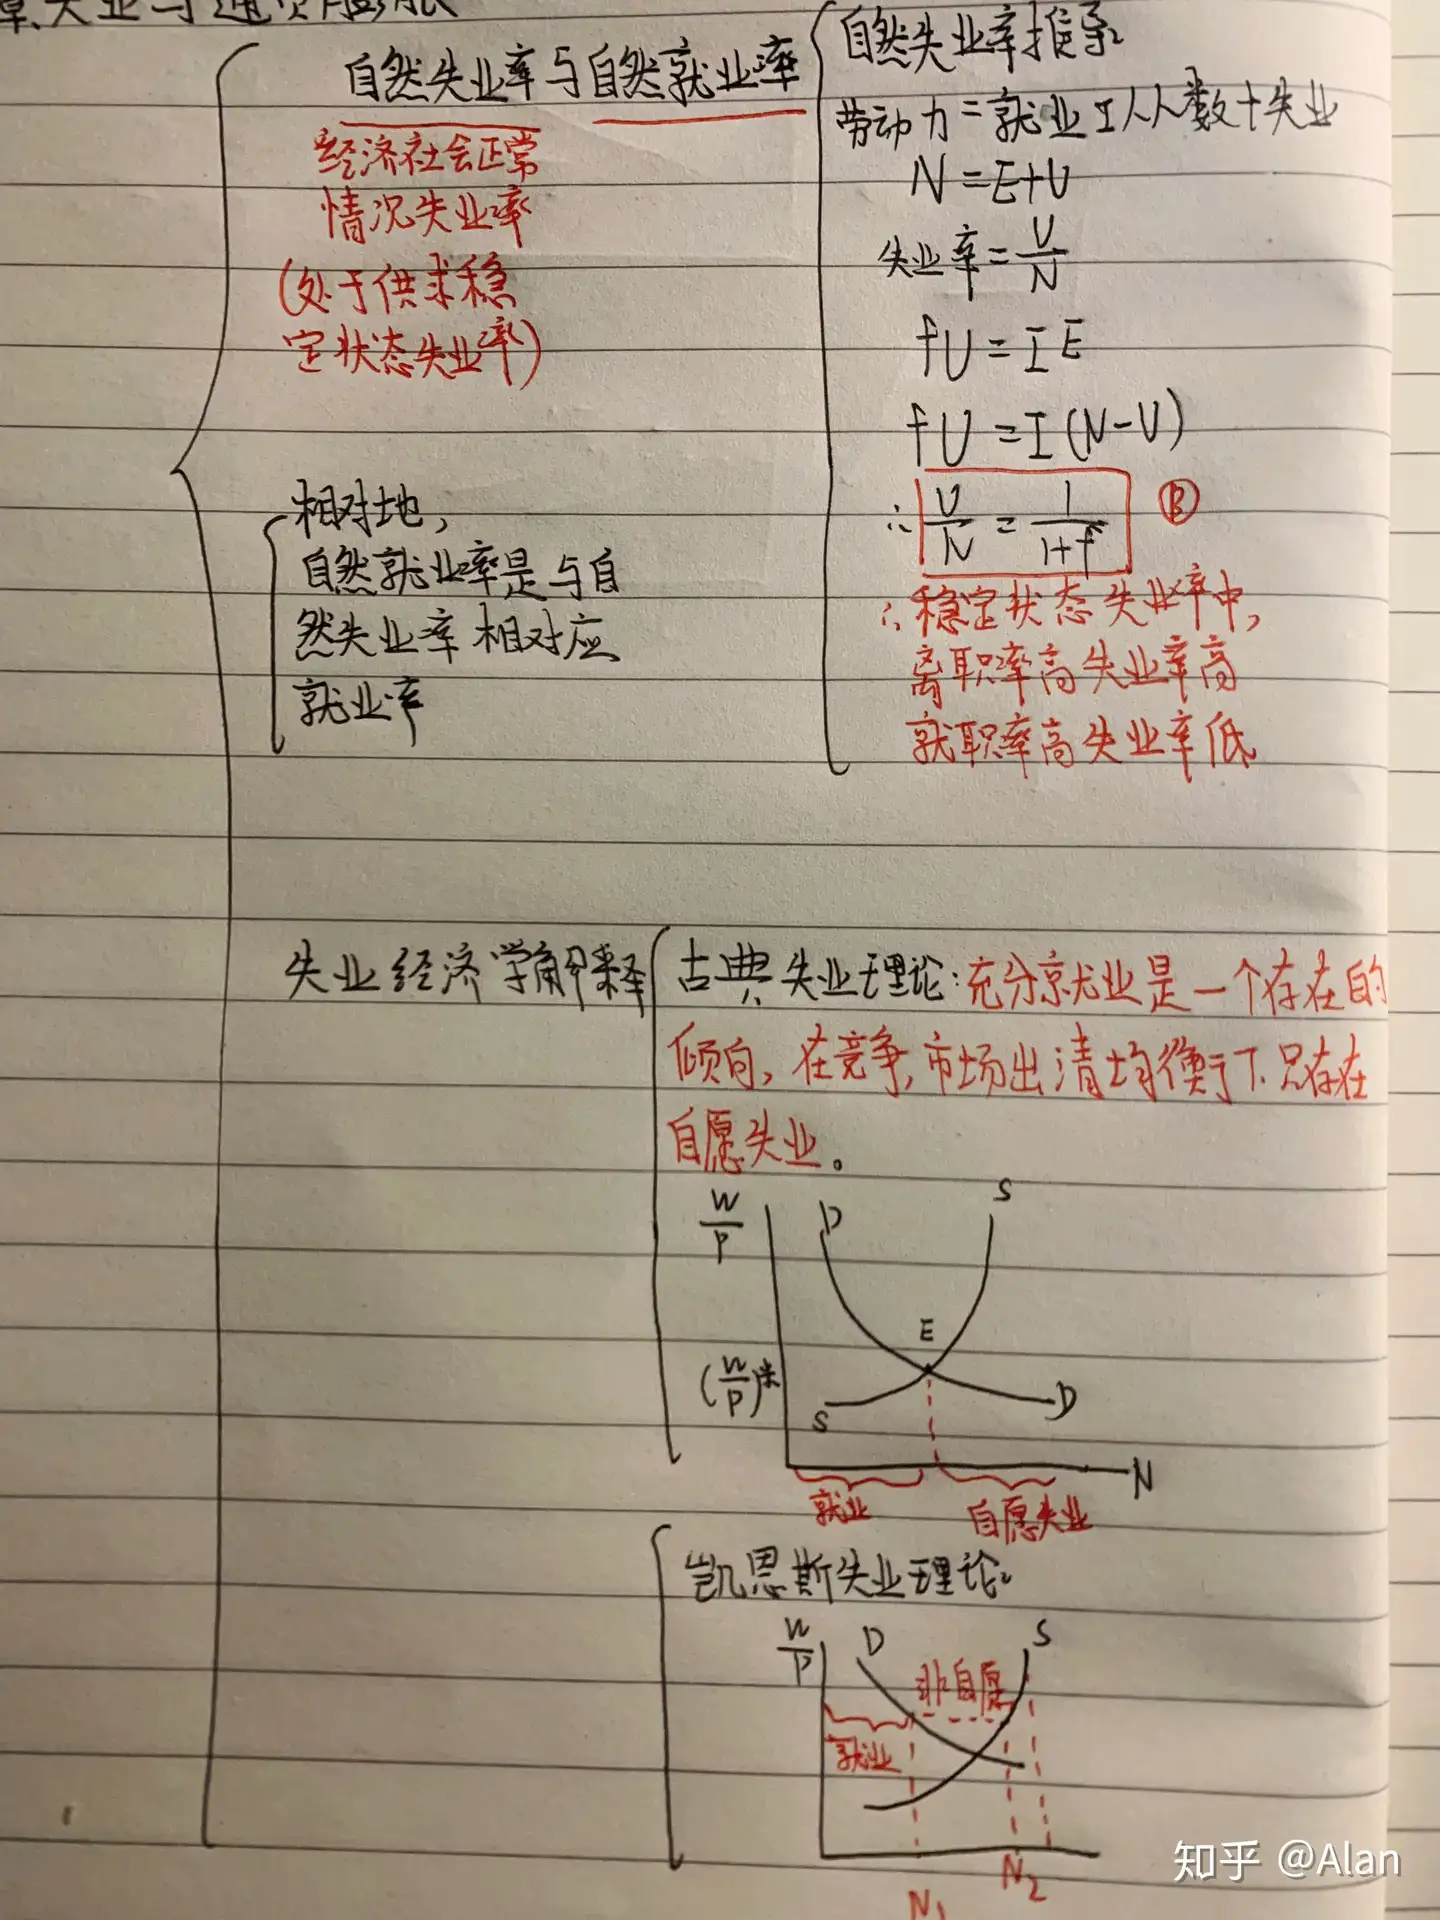 章、失业与通货膨胀
自然失业率与自然就业率
经济社会正常
情况失业率
(处于供求稳
定状态失业率)
相对地,
自然就业率是与自
然失业率相对应
就业率
自然失业率推导
劳动力=就业工人人数+失业
N=E+U
失业率=U/N
fU=IE
fU=I(N-U)
∴ U/N=1/1+f B
∴稳定状态失业率中,
离职率高失业率高
就职率高失业率低
失业经济学解释
古典失业理论:充分就业是一个存在的
倾向,在竞争,市场出清均衡下只存在
自愿失业。
W/P
D
S
E
(W/P)*
S
D
N
就业
自愿失业
凯恩斯失业理论
W/P
D
S
非自愿
就业
N1
N2
知乎 @Alan